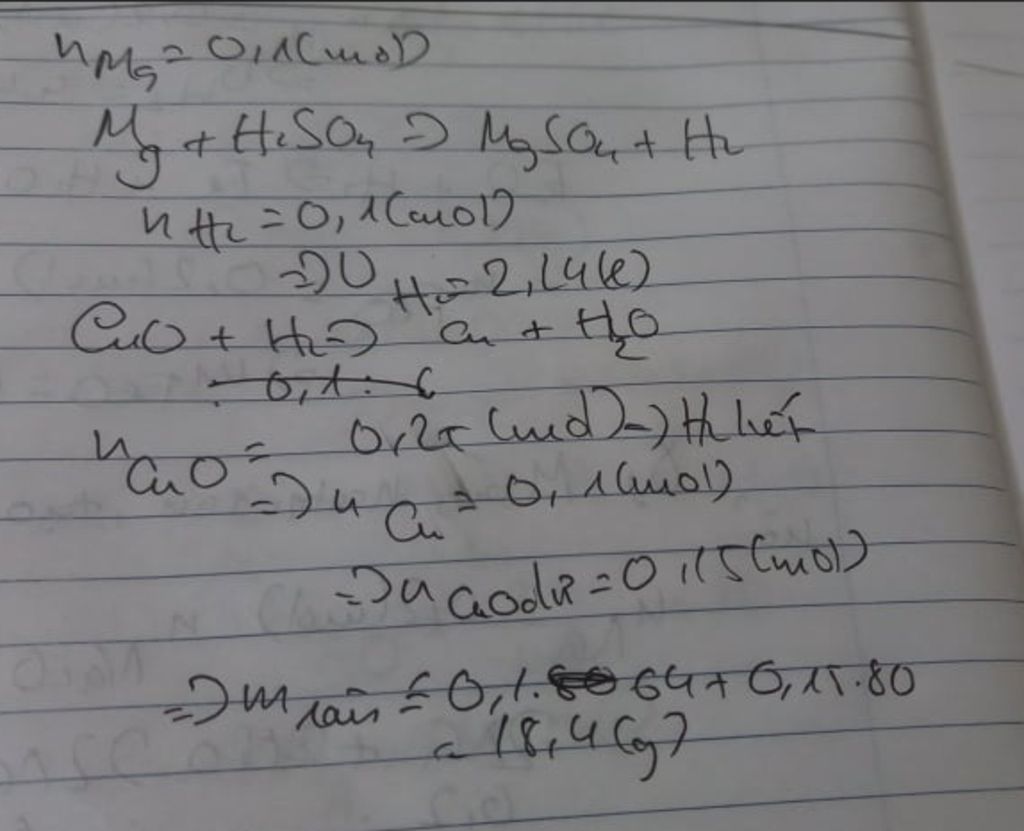 nMg = 0,1(mol)
Mg + H2SO4 => MgSO4 + H2
nH2 = 0,1(mol)
=> VH2 = 2,24(l)
CuO + H2 => Cu + H2O
0,1
nCuO = 0,25 (mol) -> H2 hết
=> nCu = 0,1(mol)
=> nCuO dư = 0,15(mol)
=> m rắn = 0,1.64 + 0,15.80
= 18,4(g)